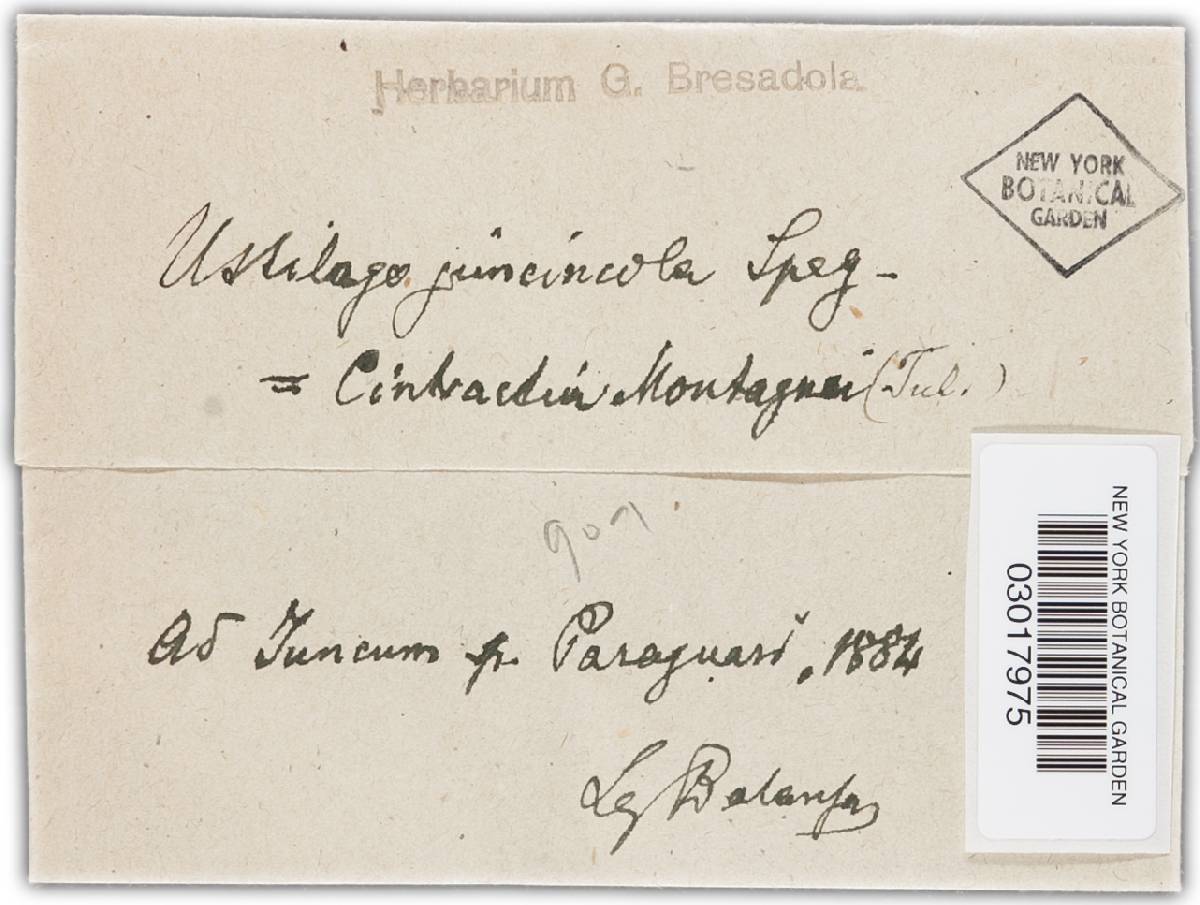 Herbarium G. Bresadola
NEW YORK
BOTANICAL
GARDEN
Ustilago juncincola Speg-
= Cintractia Montagnei (Tul.)
907
Ad Juncum pr. Paraguari, 1884
Leg Balansa
NEW YORK BOTANICAL GARDEN
03017975